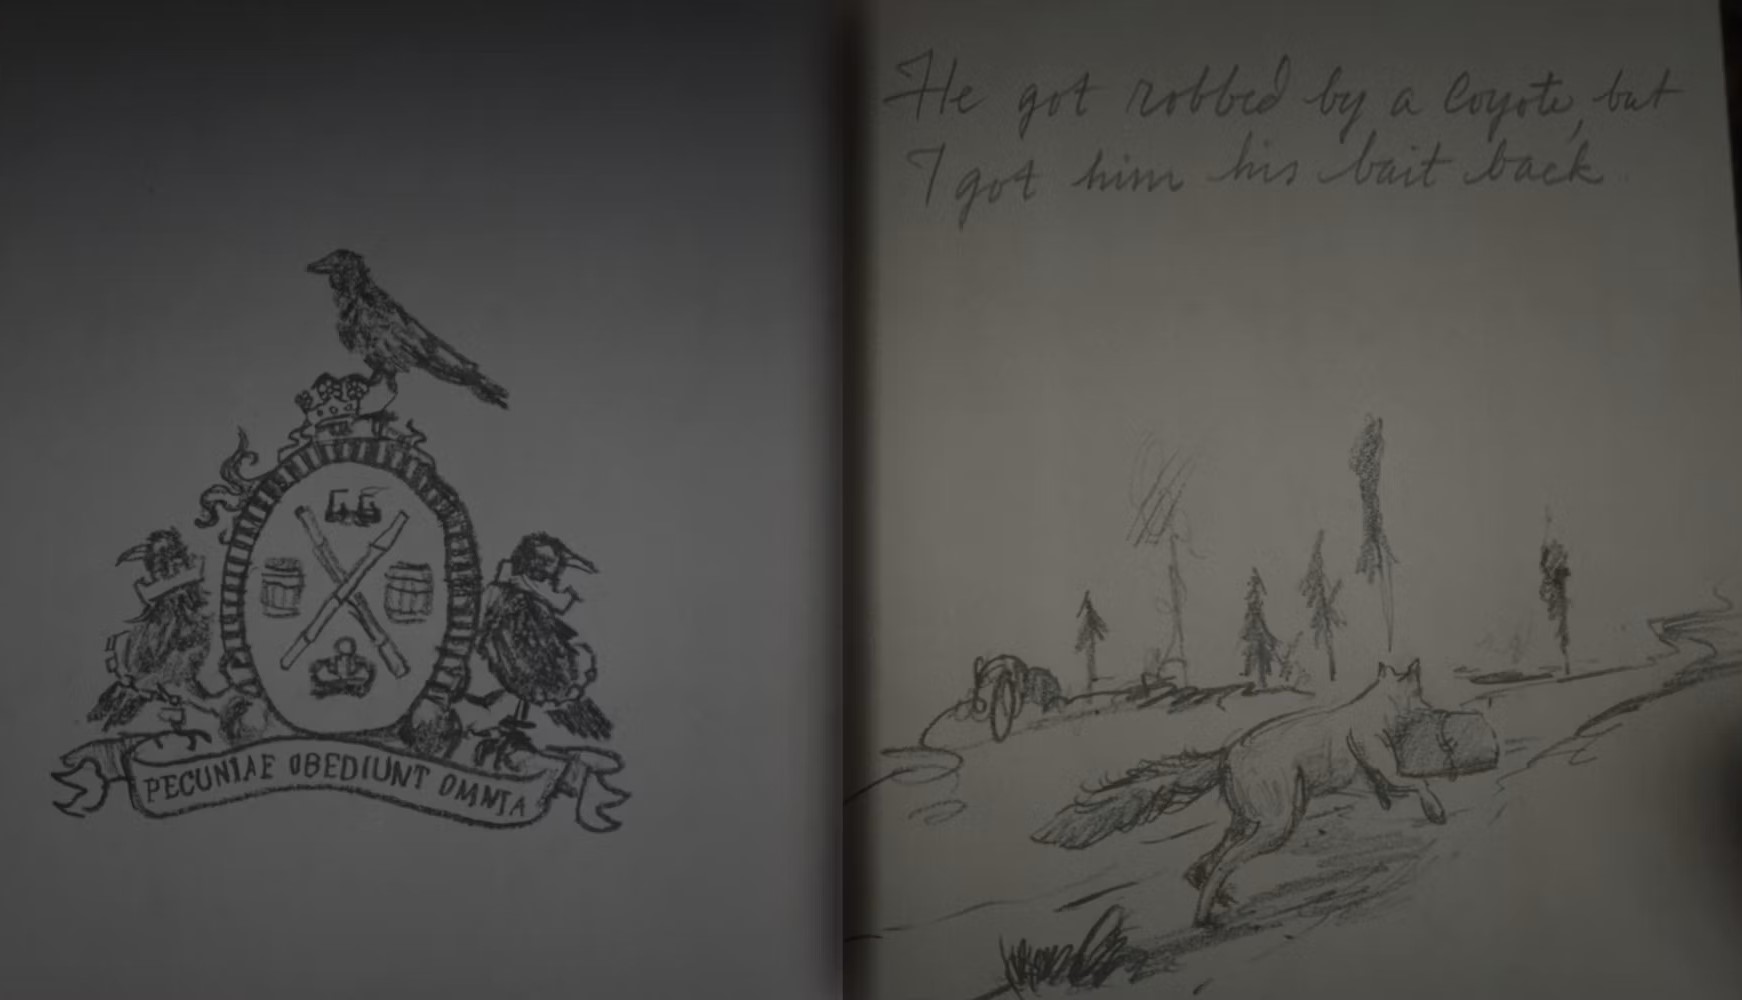 PECUNIAE OBEDIUNT OMNIA
He got robbed by a Coyote, but
I got him his bait back